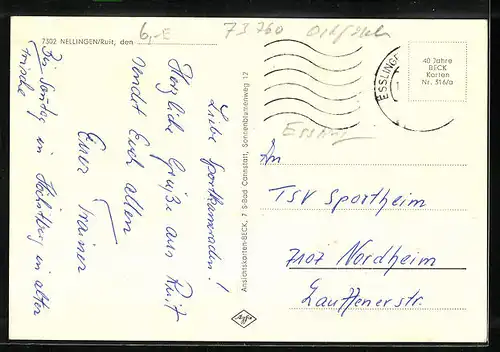 7302 NELLINGEN/Ruit, den
6,-E
73760 Ostfildern
Liebe Sportkameraden!
Herzliche Grüße aus Ruit
sendet Euch allen
Euer Trainer
Bis Sonntag in Höchstberg in alter
Frische
Ansichtskarten-BECK, 7 S-Bad Cannstatt, Sonnenblumenweg 12
Agfa
ESSLINGEN
40 Jahre
BECK
Karten
Nr. 516/a
An
TSV Sportheim
7107 Nordheim
Lauffenerstr.